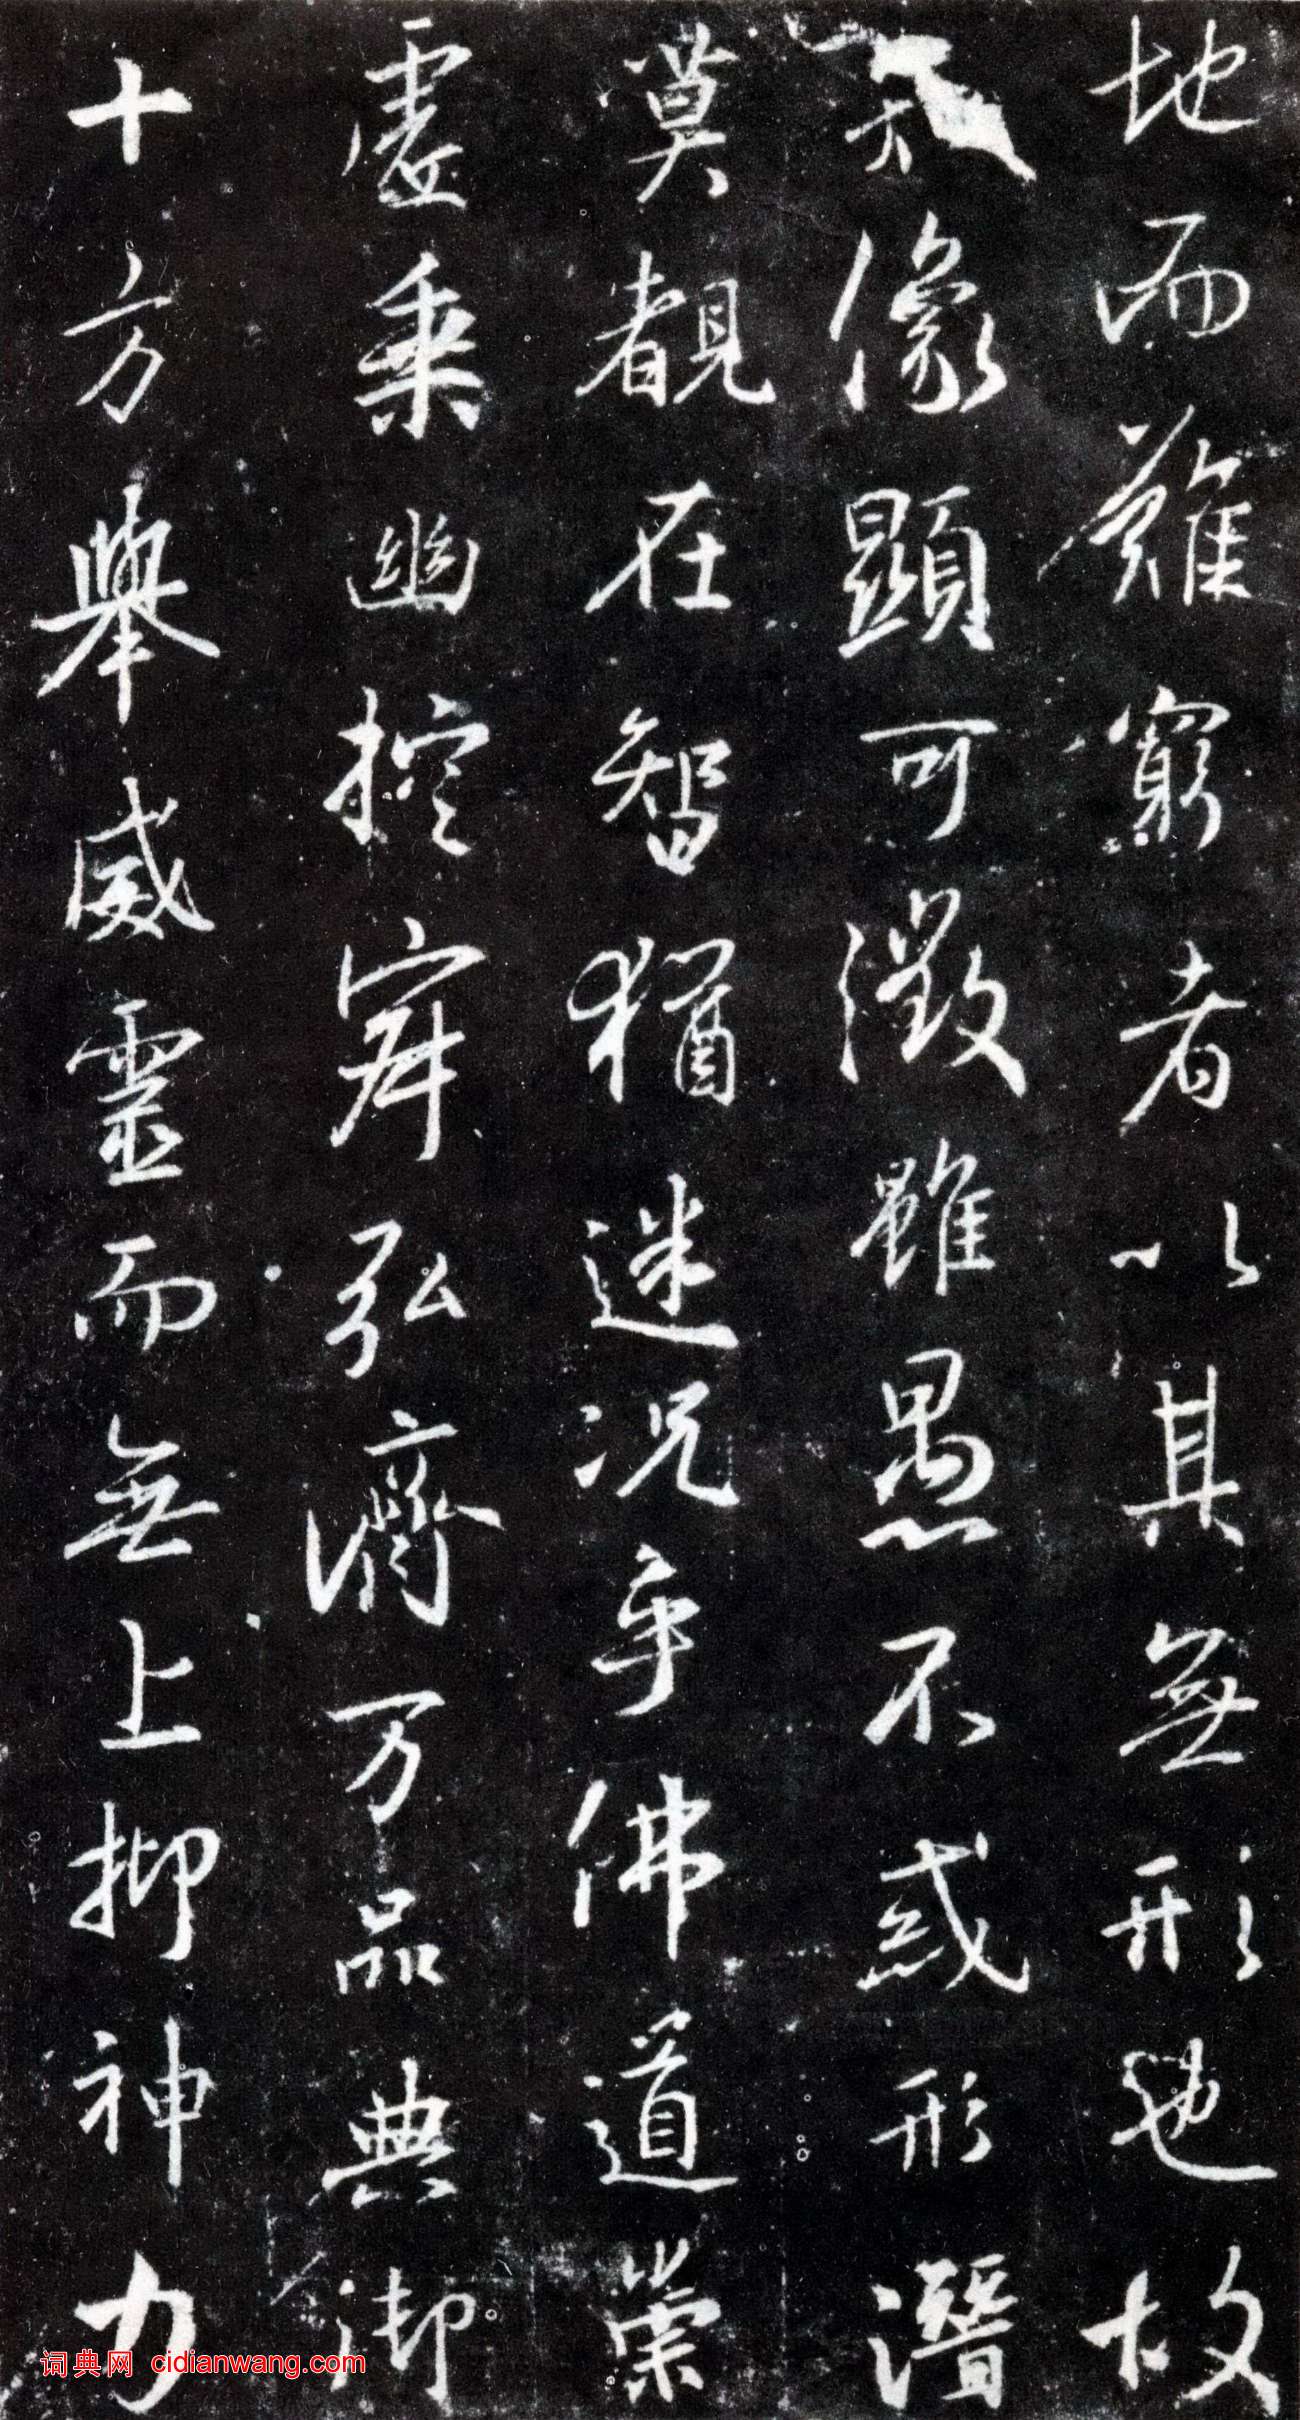 地而難窮者以其無形也故
知像顯可徵雖愚不惑形潛
莫覩在智猶迷況乎佛道崇
虛乘幽控寂弘濟万品典御
十方舉威靈而無上抑神力
词典网 cidianwang.com